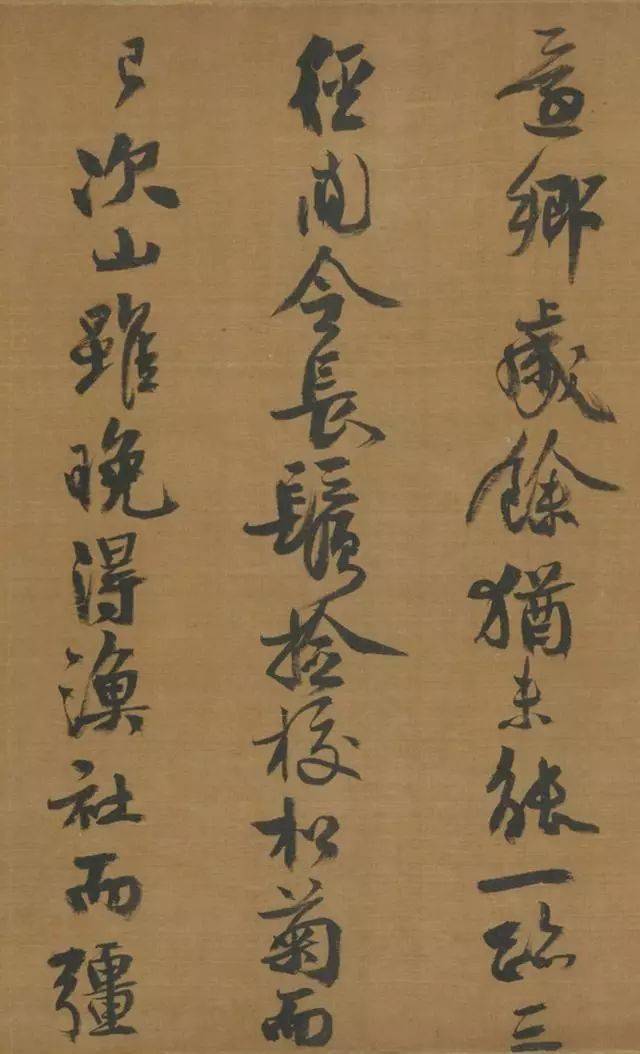 還鄉歲餘猶未能一踏三
徑閒令長鬚撿校松菊而
已次山雖晚得漁社而疆